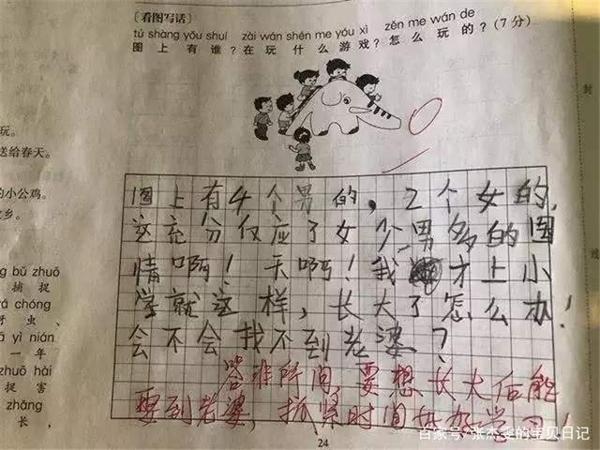 [看图写话]
tú shàng yǒu shuí zài wán shén me yóu xì zěn me wán de
图上有谁?在玩什么游戏?怎么玩的?(7分)
玩。
送给春天。
的小公鸡。
乡。
ng bǔ zhuō
捕捉
yá chóng
牙虫、
yì nián
一年
zhuō hài
捉害
zhǎng
长,
图上有4个男的,2个女的,
这充分仅应了女少男多的国
情啊!天啊!我才上小
学就这样,长大了怎么办!
会不会找不到老婆?
答非所问,要想长大后能
娶到老婆,抓紧时间学习!
24
封
百家号 的宝贝日记